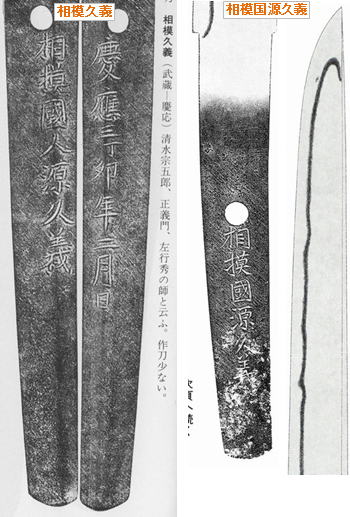 相模久義
相模国源久義
相模久義(武蔵―慶応)清水宗五郎、正義門、左行秀の師と云ふ。作刀少ない。
慶應三丁卯年二月日
相模國人源久義
相模國源久義